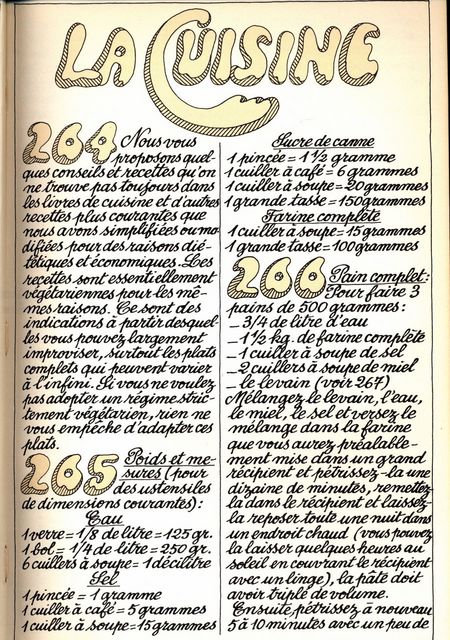 LA CUISINE
264 Nous vous
proposons quel-
ques conseils et recettes qu'on
ne trouve pas toujours dans
les livres de cuisine et d'autres
recettes plus courantes que
nous avons simplifiées ou mo-
difiées pour des raisons dié-
tétiques et économiques. Les
recettes sont essentiellement
végétariennes pour les mê-
mes raisons. Ce sont des
indications à partir desquel-
les vous pouvez largement
improviser, surtout les plats
complets qui peuvent varier
à l'infini. Si vous ne voulez
pas adopter un régime stric-
tement végétarien, rien ne
vous empêche d'adapter ces
plats.
265 Poids et me-
sures (pour
des ustensiles
de dimensions courantes):
Eau
1 verre = 1/8 de litre = 125 gr.
1 bol = 1/4 de litre = 250 gr.
6 cuillers à soupe = 1 décilitre
Sel
1 pincée = 1 gramme
1 cuiller à café = 5 grammes
1 cuiller à soupe = 15 grammes
Sucre de canne
1 pincée = 1 1/2 gramme
1 cuiller à café = 6 grammes
1 cuiller à soupe = 20 grammes
1 grande tasse = 150 grammes
Farine complète
1 cuiller à soupe = 15 grammes
1 grande tasse = 100 grammes
266 Pain complet:
Pour faire 3
pains de 500 grammes:
_ 3/4 de litre d'eau
_ 1 1/2 kg. de farine complète
_ 1 cuiller à soupe de sel
_ 2 cuillers à soupe de miel
_ le levain (voir 267)
Mélangez le levain, l'eau,
le miel, le sel et versez le
mélange dans la farine
que vous aurez préalable-
ment mise dans un grand
récipient et pétrissez-la une
dizaine de minutes, remettez-
la dans le récipient et laissez-
la reposer toute une nuit dans
un endroit chaud (vous pouvez
la laisser quelques heures au
soleil en couvrant le récipient
avec un linge), la pâte doit
avoir triplé de volume.
Ensuite pétrissez à nouveau
5 à 10 minutes avec un peu de